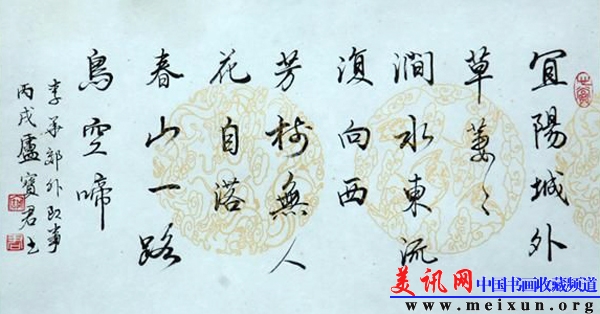 宜陽城外
草萋〻
澗水東流
復向西
芳樹無人
花自落
春山一路
鳥空啼
李華郊外即事
丙戌盧寶君书
美讯网中国书画收藏频道
www.meixun.org